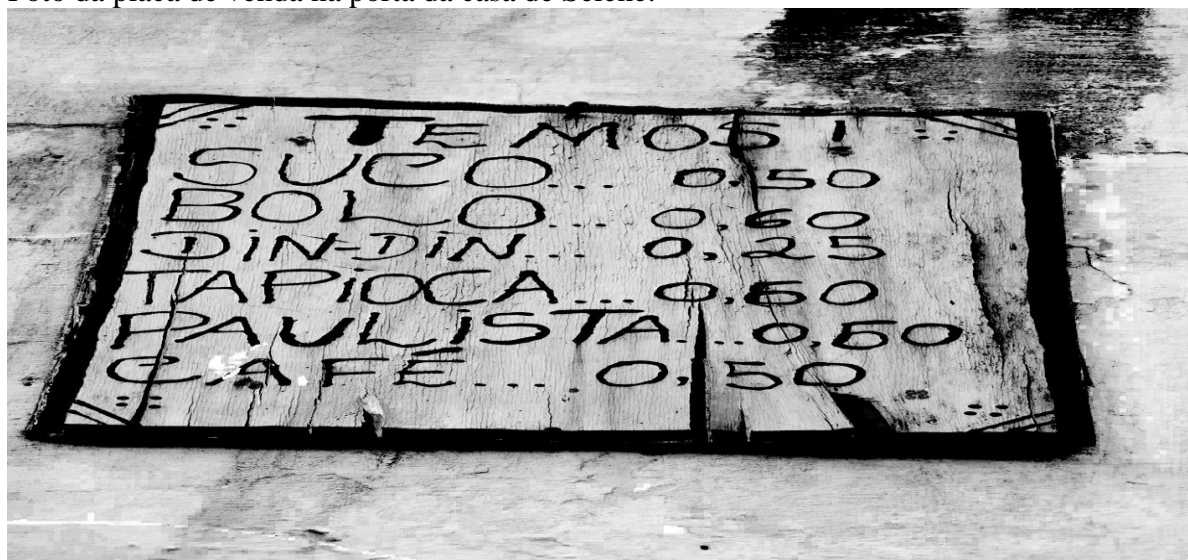 TEMOS!
SUCO... 0,50
BOLO... 0,60
DiN-DiN... 0,25
TAPiOCA... 0,60
PAULiSTA... 0,60
CAFÉ.... 0,50